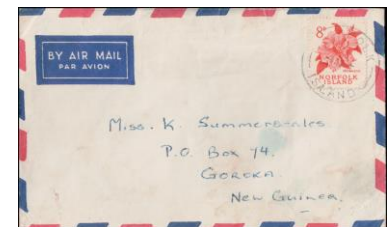 BY AIR MAIL
PAR AVION
8d
NORFOLK
ISLAND
ISLAND
Miss. K. Summerscales
P.O. Box 94.
GOROKA.
NEW GUINEA.